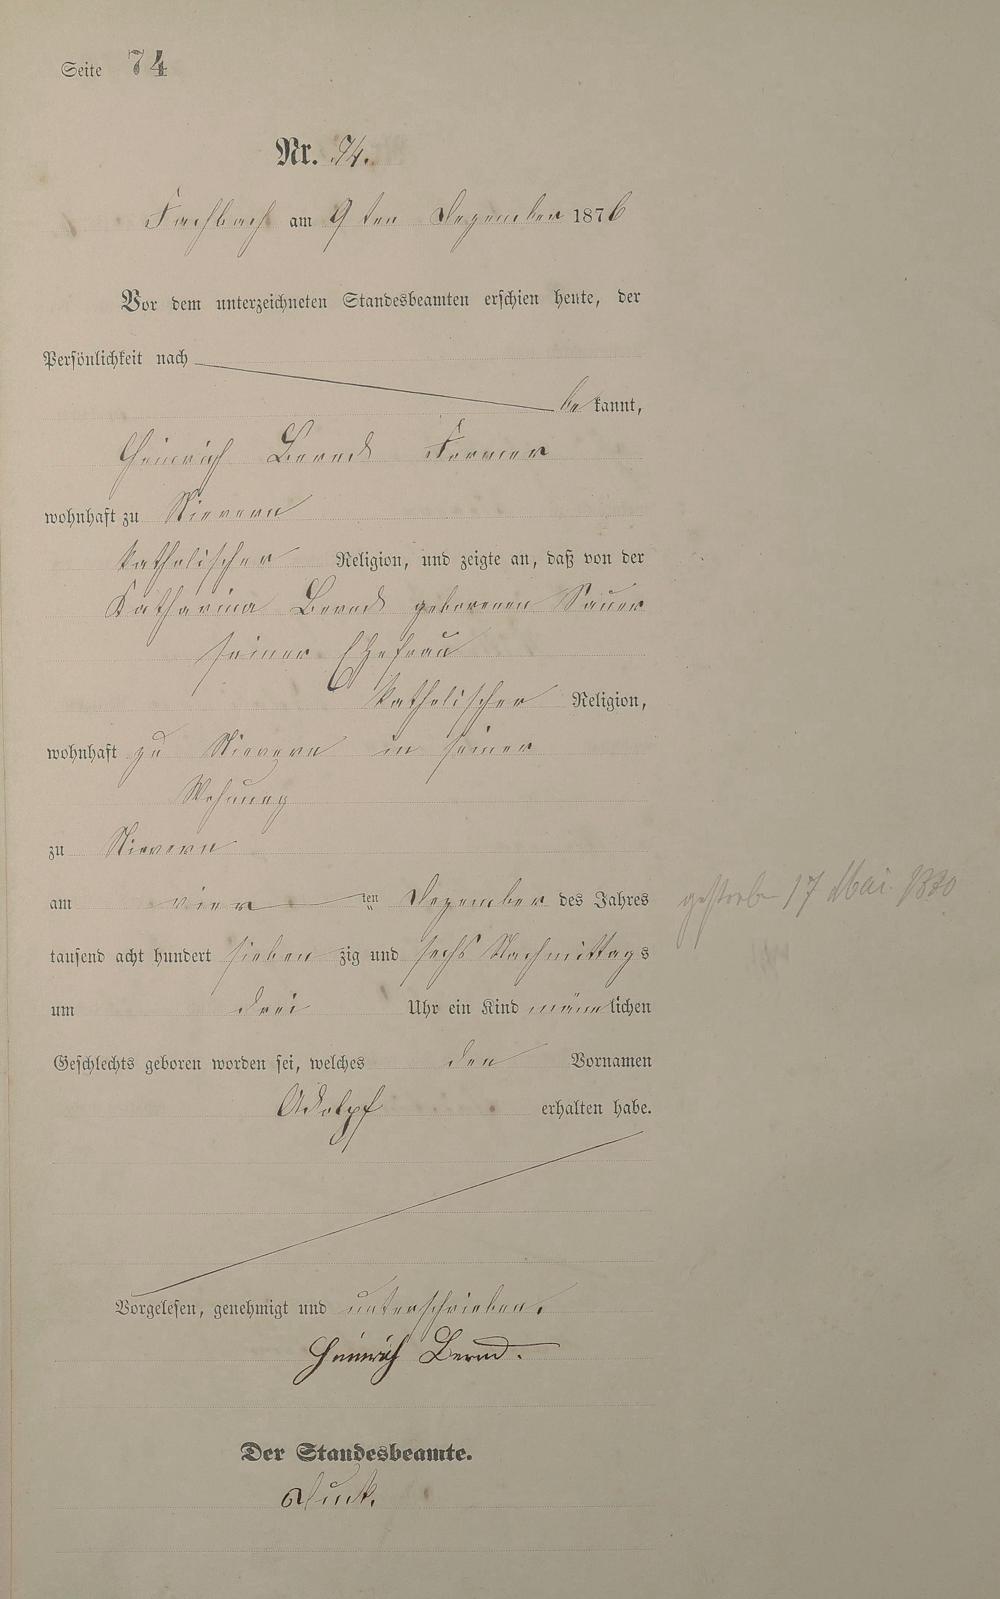 Seite 74
Nr. 74.
Fachbach am 9ten Dezember 1876
Vor dem unterzeichneten Standesbeamten erschien heute, der
Persönlichkeit nach
bekannt,
Heinrich Bernd Former
wohnhaft zu Nievern
katholischer Religion, und zeigte an, daß von der
Katharina Bernd geborenen Sauer
seiner Ehefrau
katholischer Religion,
wohnhaft zu Nievern in seiner
Wohnung
zu Nievern
am vier ten Dezember des Jahres
gestorben 17 Mai
tausend acht hundert siebenzig und sechs Nachmittags
um drei Uhr ein Kind männlichen
Geschlechts geboren worden sei, welches den Vornamen
Adolph erhalten habe.
Vorgelesen, genehmigt und unterschrieben.
Heinrich Bernd.
Der Standesbeamte.